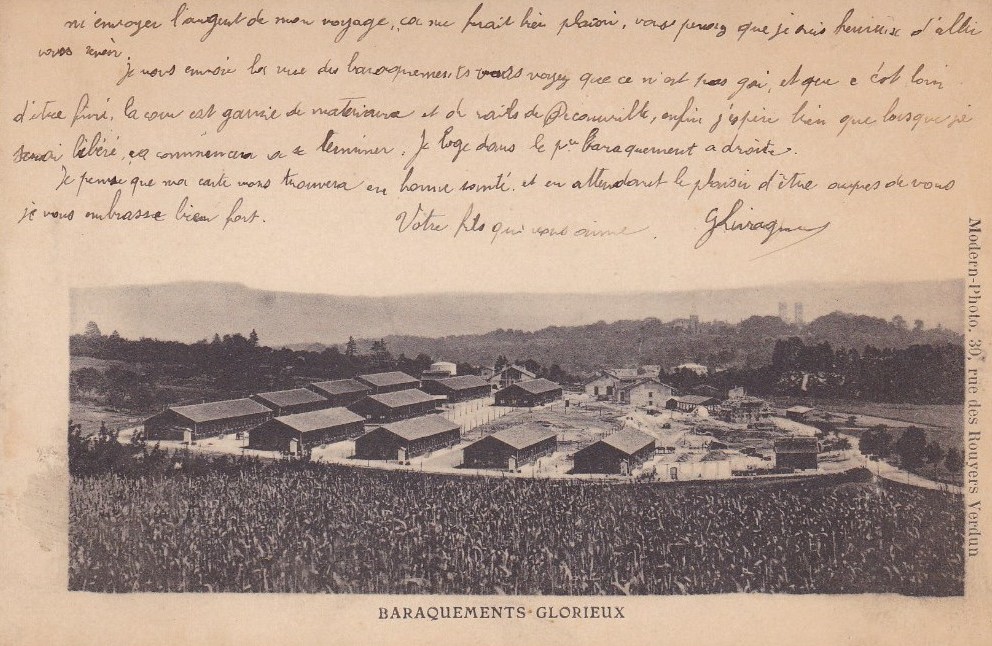 m'envoyer l'argent de mon voyage, ça me ferait bien plaisir, vous pensez que je suis heureux d'aller
vous revoir.
Je vous envoie la vue des baraquements vous voyez que ce n'est pas gai, et que c'est loin
d'être fini, la cour est garnie de materiaux et de rails de Decauville, enfin j'espère bien que lorsque je
serai libéré, ça commencera a se terminer. Je loge dans le baraquement a droite.
Je pense que ma carte vous trouvera en bonne santé. et en attendant le plaisir d'être aupres de vous
je vous embrasse bien fort. Votre fils qui vous aime.
Modern-Photo. 30, rue des Rouyers Verdun
BARAQUEMENTS GLORIEUX